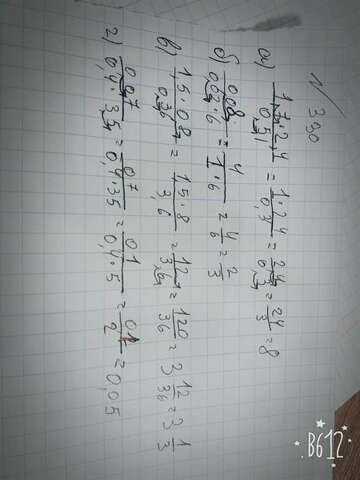 N 390
а) 1,7·2,4 / 0,51 = 1·2,4 / 0,3 = 2,4 / 0,3 = 24 / 3 = 8
б) 0,08 / 0,02·6 = 4 / 1·6 = 4 / 6 = 2 / 3
в) 15·0,8 / 0,36 = 15·8 / 3,6 = 12 / 3,6 = 120 / 36 = 3 12/36 = 3 1/3
г) 0,07 / 0,4·3,5 = 0,7 / 0,4·35 = 0,1 / 0,4·5 = 0,1 / 2 = 0,05
B612